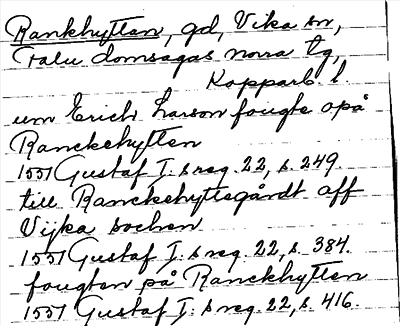 Rankhyttan, gd, Vika sn,
Falu domsagas norra tg,
Kopparb. l.
um Erich Larson fougte opå
Ranckehytten
1551 Gustaf I:s reg. 22, s. 249.
till Ranckehyttegårdt aff
Vijka sochen
1551 Gustaf I:s reg. 22, s. 384.
fougten på Ranckhytten
1551 Gustaf I:s reg. 22, s. 416.